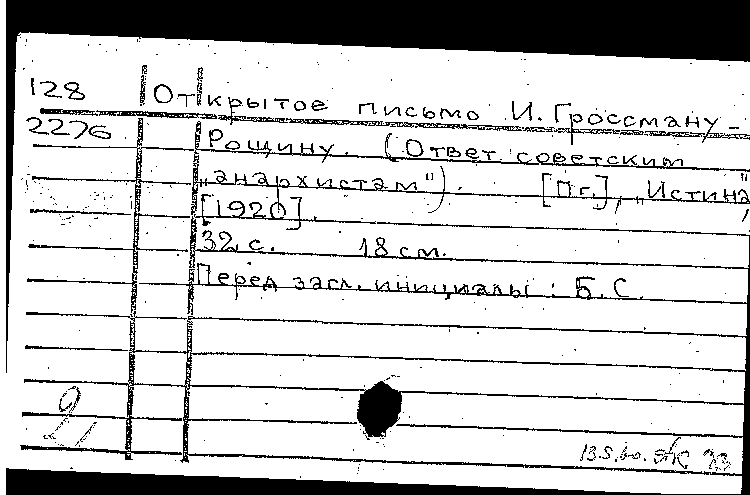 128 Открытое письмо И. Гроссману-
2276 Рощину. (Ответ советским
„анархистам"). [Пг.], „Истина",
[1920].
32 с. 18 см.
Перед загл. инициалы: Б.С.
2,